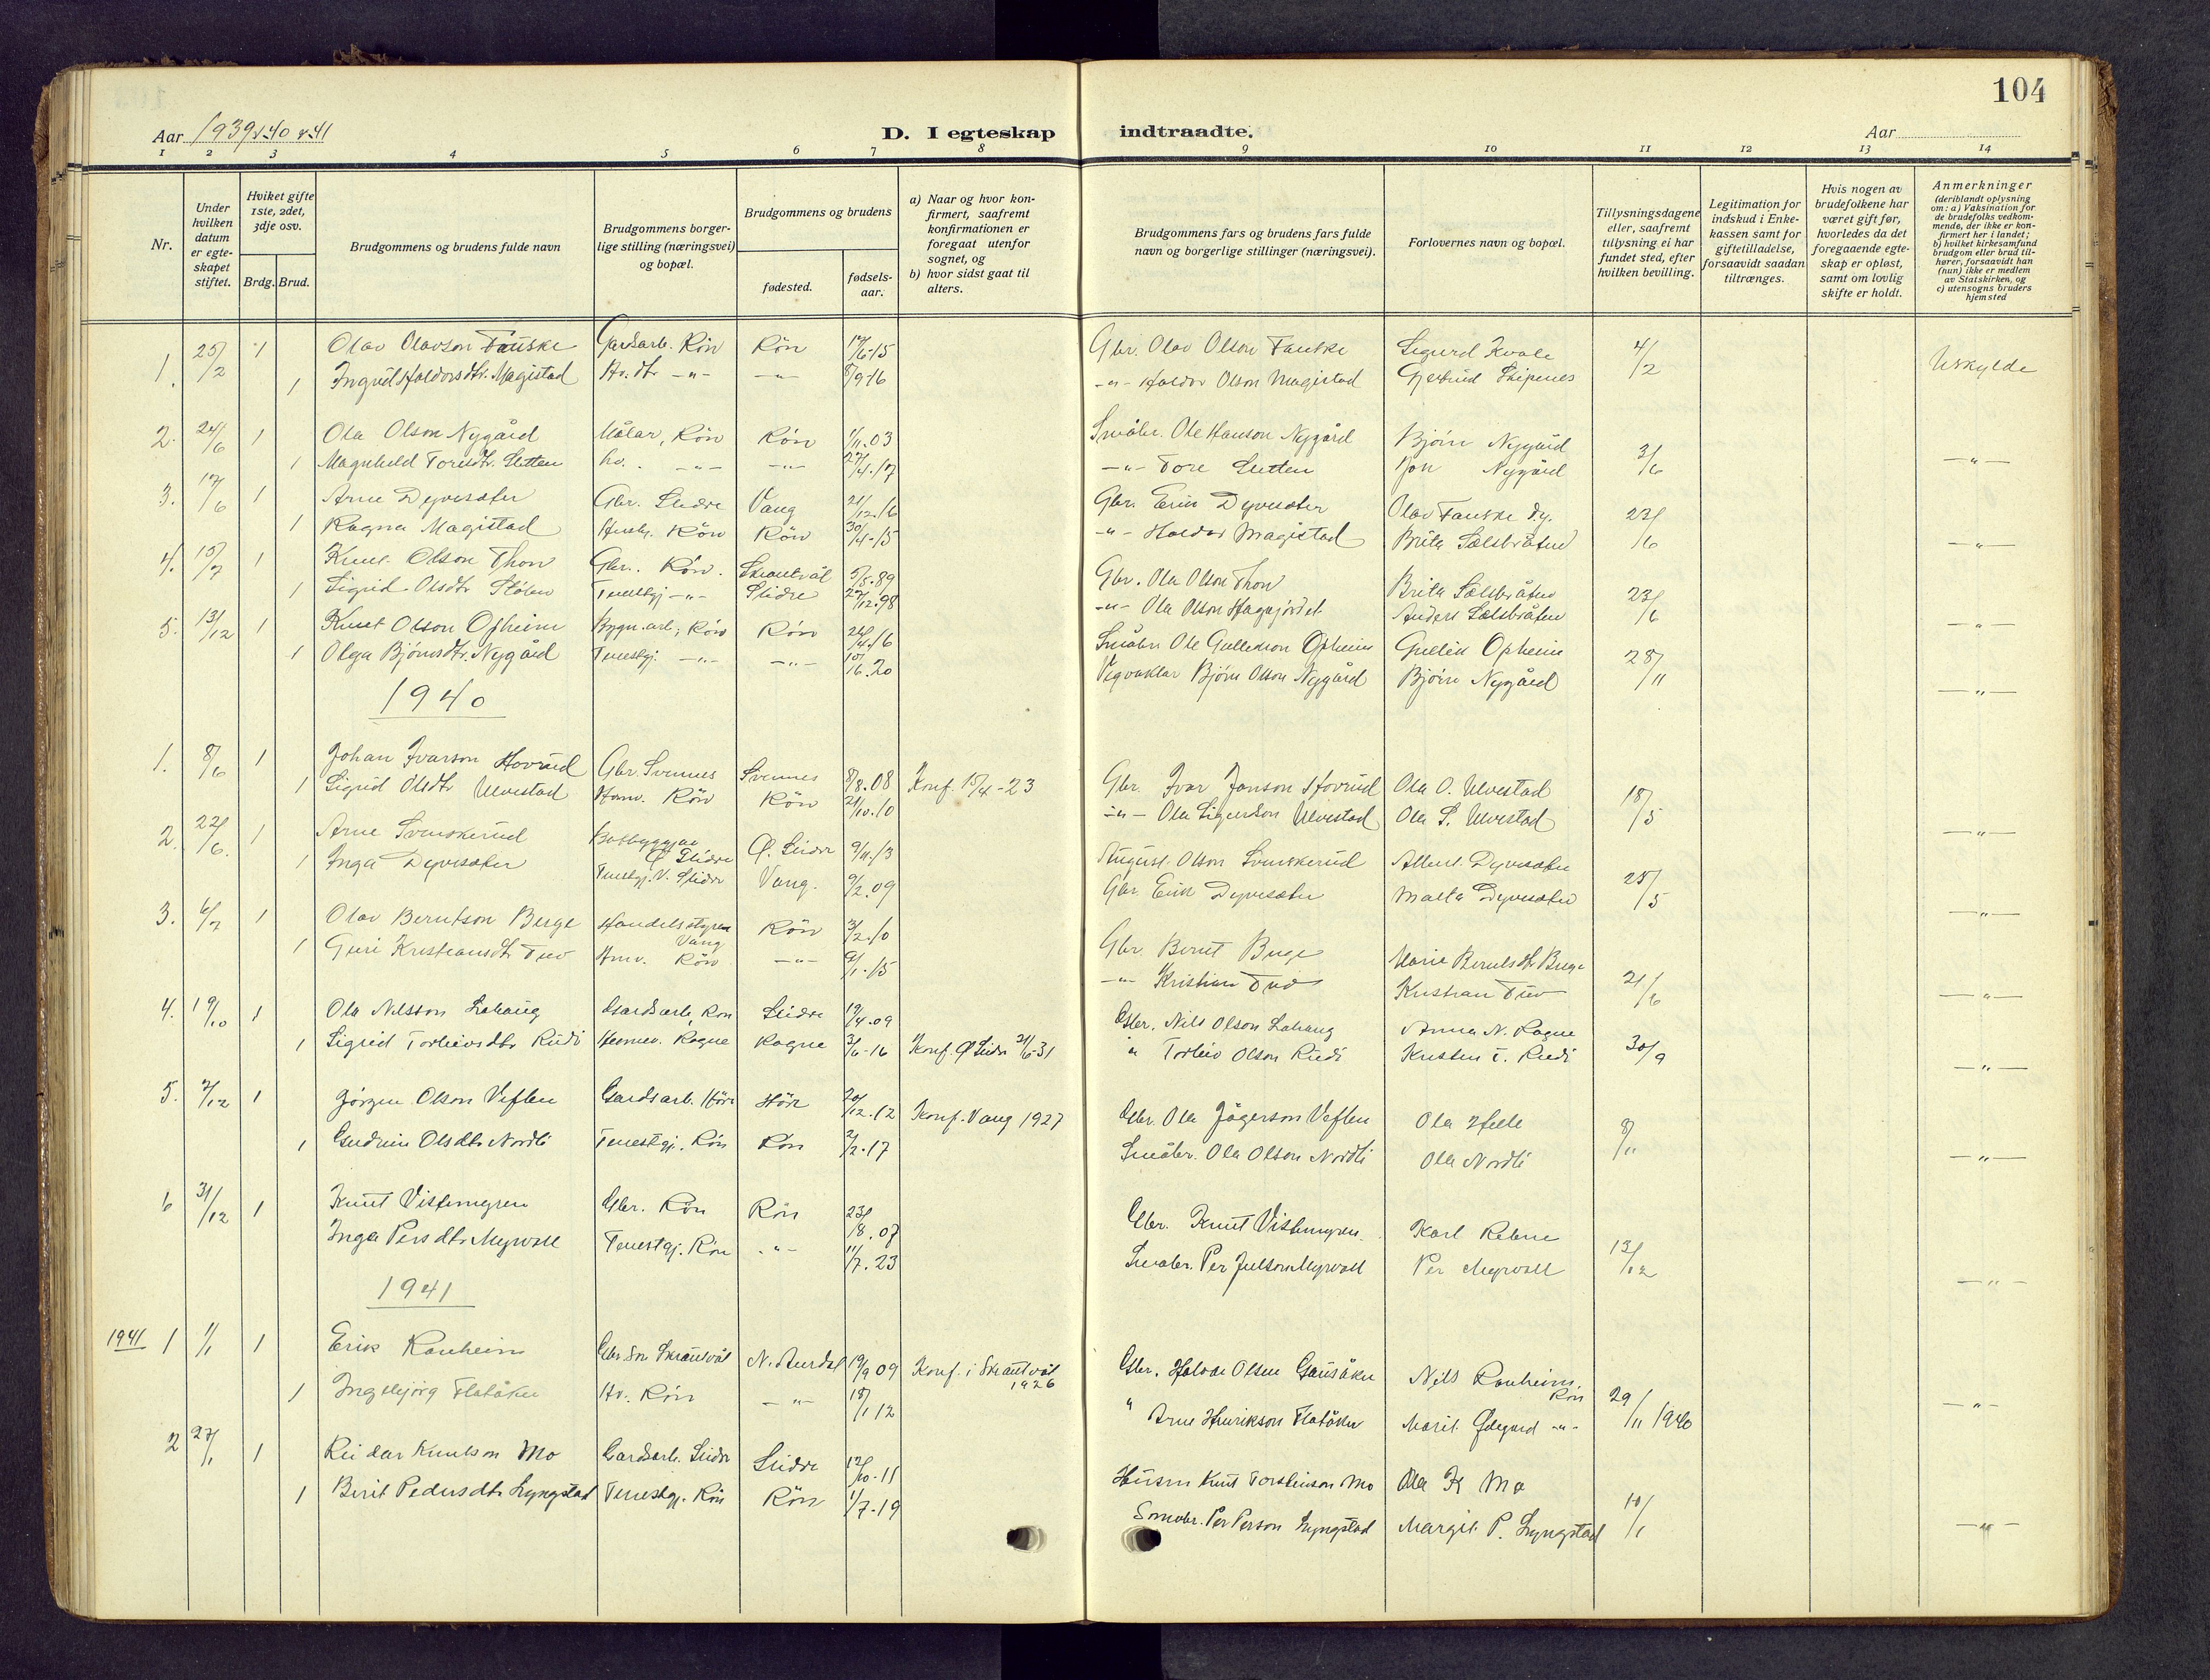 104
Aar 1939 & 40 & 41
D. I egteskap indtraadte.
Aar
1 2 3 4 5 6 7 8 9 10 11 12 13 14
Nr.
Under hvilken datum er egteskapet stiftet.
Hviket gifte 1ste, 2det, 3dje osv.
Brdg. Brud.
Brudgommens og brudens fulde navn
Brudgommens borgerlige stilling (næringsvei) og bopæl.
Brudgommens og brudens
fødested.
fødselsaar.
a) Naar og hvor konfirmert, saafremt konfirmationen er foregaat utenfor sognet, og
b) hvor sidst gaat til alters.
Brudgommens fars og brudens fars fulde navn og borgerlige stillinger (næringsvei).
Forlovernes navn og bopæl.
Tillysningsdagene eller, saafremt tillysning ei har fundet sted, efter hvilken bevilling.
Legitimation for indskud i Enkekassen samt for giftetilladelse, forsaavidt saadan tiltrænges.
Hvis nogen av brudefolkene har været gift før, hvorledes da det foregaaende egteskap er opløst, samt om lovlig skifte er holdt.
Anmerkninger (deriblandt oplysning om: a) Vaksination for de brudefolks vedkommende, der ikke er konfirmert her i landet; b) hvilket kirkesamfund brudgom eller brud tilhører, forsaavidt han (hun) ikke er medlem av Statskirken, og c) utensogns bruders hjemsted
1. 25/2 1 Olav Olavson Fauske Gardsarb. Rön Rön 17/6-15 Gbr. Olav Olson Fauske Sigurd Kvale 4/2 Uskylde
1 Ingrid Haldorsdtr. Magistad Hv. dtr -"- -"- 8/9-16 -"- Haldor Olson Magistad Gjertrud Skipenes
2. 24/6 1 Ola Olson Nygård Målar, Rön Rön 1/11.03 Småbr. Ole Hanson Nygård Bjørn Nygård 3/6 -"-
1 Magnhild Toresdtr. Sletten hv. -"- -"- 27/4.17 -"- Tore Sletten Jon Nygård
3. 17/6 1 Arne Dyvesæter Gbr. Slidre Vang 21/12.16 Gbr. Erik Dyvesæter Olav Fauske d.y. 23/6 -"-
1 Ragna Magistad Rön Rön 30/4-15 -"- Haldor Magistad Brita Sælsbråten
4. 15/7 1 Knut Olson Thon Gbr. Rön. Skrautvål 5/5.89 Gbr. Ola Olson Thon Brita Sælsbråten 23/6 -"-
1 Sigrid Olsdtr Stölen Tenestgj -"- Slidre 27/12.98 -"- Ola Olson Hagajordet Anders Sælsbråten
5. 13/12 1 Knut Olson Opheim Bygn.arb., Rön Rön 24/4.16 Småbr. Ole Gullekson Opheim Gullik Opheim 28/11 -"-
1 Olga Bjørnsdtr. Nygård Tenestgj. -"- -"- 10/16.20 Vegvaktar Bjørn Olson Nygård Bjørn Nygård
1940
1. 8/6 1 Johan Ivarson Hovrud Gbr. Svennes Svennes 8/8.08 Konf. 15/4-23 Gbr. Ivar Janson Hovrud Ola O. Ulvestad 18/5 -"-
1 Sigrid Olsdtr Ulvestad Rön Rön 21/10.10 -"- Ola Sigurdson Ulvestad Ola S. Ulvestad
2. 22/6. 1 Arne Svenskerud Båtbyggjar Ø. Slidre Ø. Slidre 9/11.13 August Olson Svenskerud Albert Dyvesæter 25/5 -"-
1 Inga Dyvesæter Tenestgj. V. Slidre Vang. 9/2.09 Gbr. Erik Dyvesæter Marta Dyvesæter
3. 6/7 1 Olav Berntson Berge Handelsstyrer Vang Rön 3/2.10 Gbr. Bernt Berge Marie Berntsdtr Berge 21/6 -"-
1 Guri Kristiansdtr Tuv Rön -"- 9/1.15 -"- Kristian Tuv Kristian Tuv
4. 19/10 1 Ola Nilsson Lahaug Gardsarb, Rön Slidre 19/4.09 Gbr. Nils Olson Lahaug Anna N. Rogne 30/9 -"-
1 Sigrid Torleivsdtr Rudi Heimev. Rogne Rogne 3/6-16 Konf. Ø Slidre 21/6-31 " Torleiv Olson Rudi Kristen T. Rudi
5. 7/12 1 Jörgen Olson Veflen Gardsarb. Höre Höre 20/12.12 Konf. Vang 1927 Gbr. Ola Jögerson Veflen Ola Helle 8/11 -"-
1 Gudrun Olsdtr Nordli Tenestgj. Rön Rön 2/2.17 Småbr. Ola Olson Nordli Ola Nordli
6 31/12 1 Knut Vistemyren Gbr. Rön Rön 23/8.07 Gbr. Knut Vistemyren. Karl Rebne 13/12 -"-
Inga Persdtr Myrvoll Tenestgj. Rön -"- 11/7.23 Småbr. Per Julson Myrvoll Per Myrvoll
1941
1941 1 1/1 1 Erik Ranheim Gbr.son Skrautvål N. Aurdal 19/9 09 Konf. i Skrautvål 1926 Gbr. Halvar Olsen Gausåker Nils Ranheim. Rön 29/11 1940 -"-
1 Ingebjörg Flatåker Hv. Rön -"- 18/1 12 " Arne Henrikson Flatåker Marit Ødegård -"-
2 27/1 1 Reidar Knutson Mo Gardsarb. Slidre Slidre 12/10-11 Husm Knut Torsteinson Mo Ola K Mo 10/1 -"-
1 Berit Pedersdtr Lyngstad Tenestgj. Rön Rön 1/7.19 Småbr. Per Person Lyngstad Margit P. Lyngstad